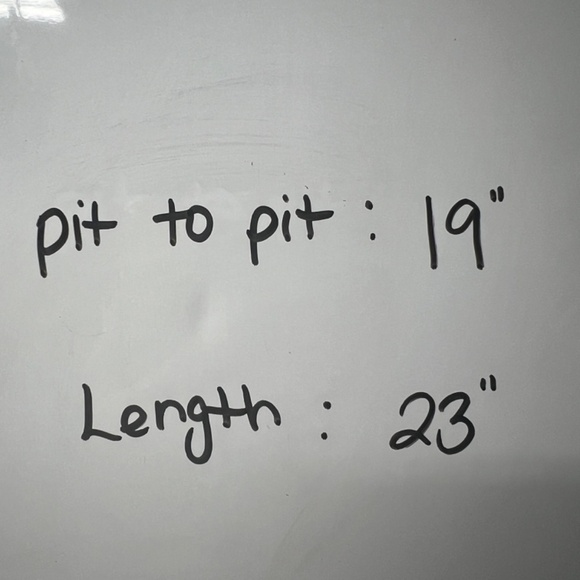 pit to pit : 19"
Length : 23"